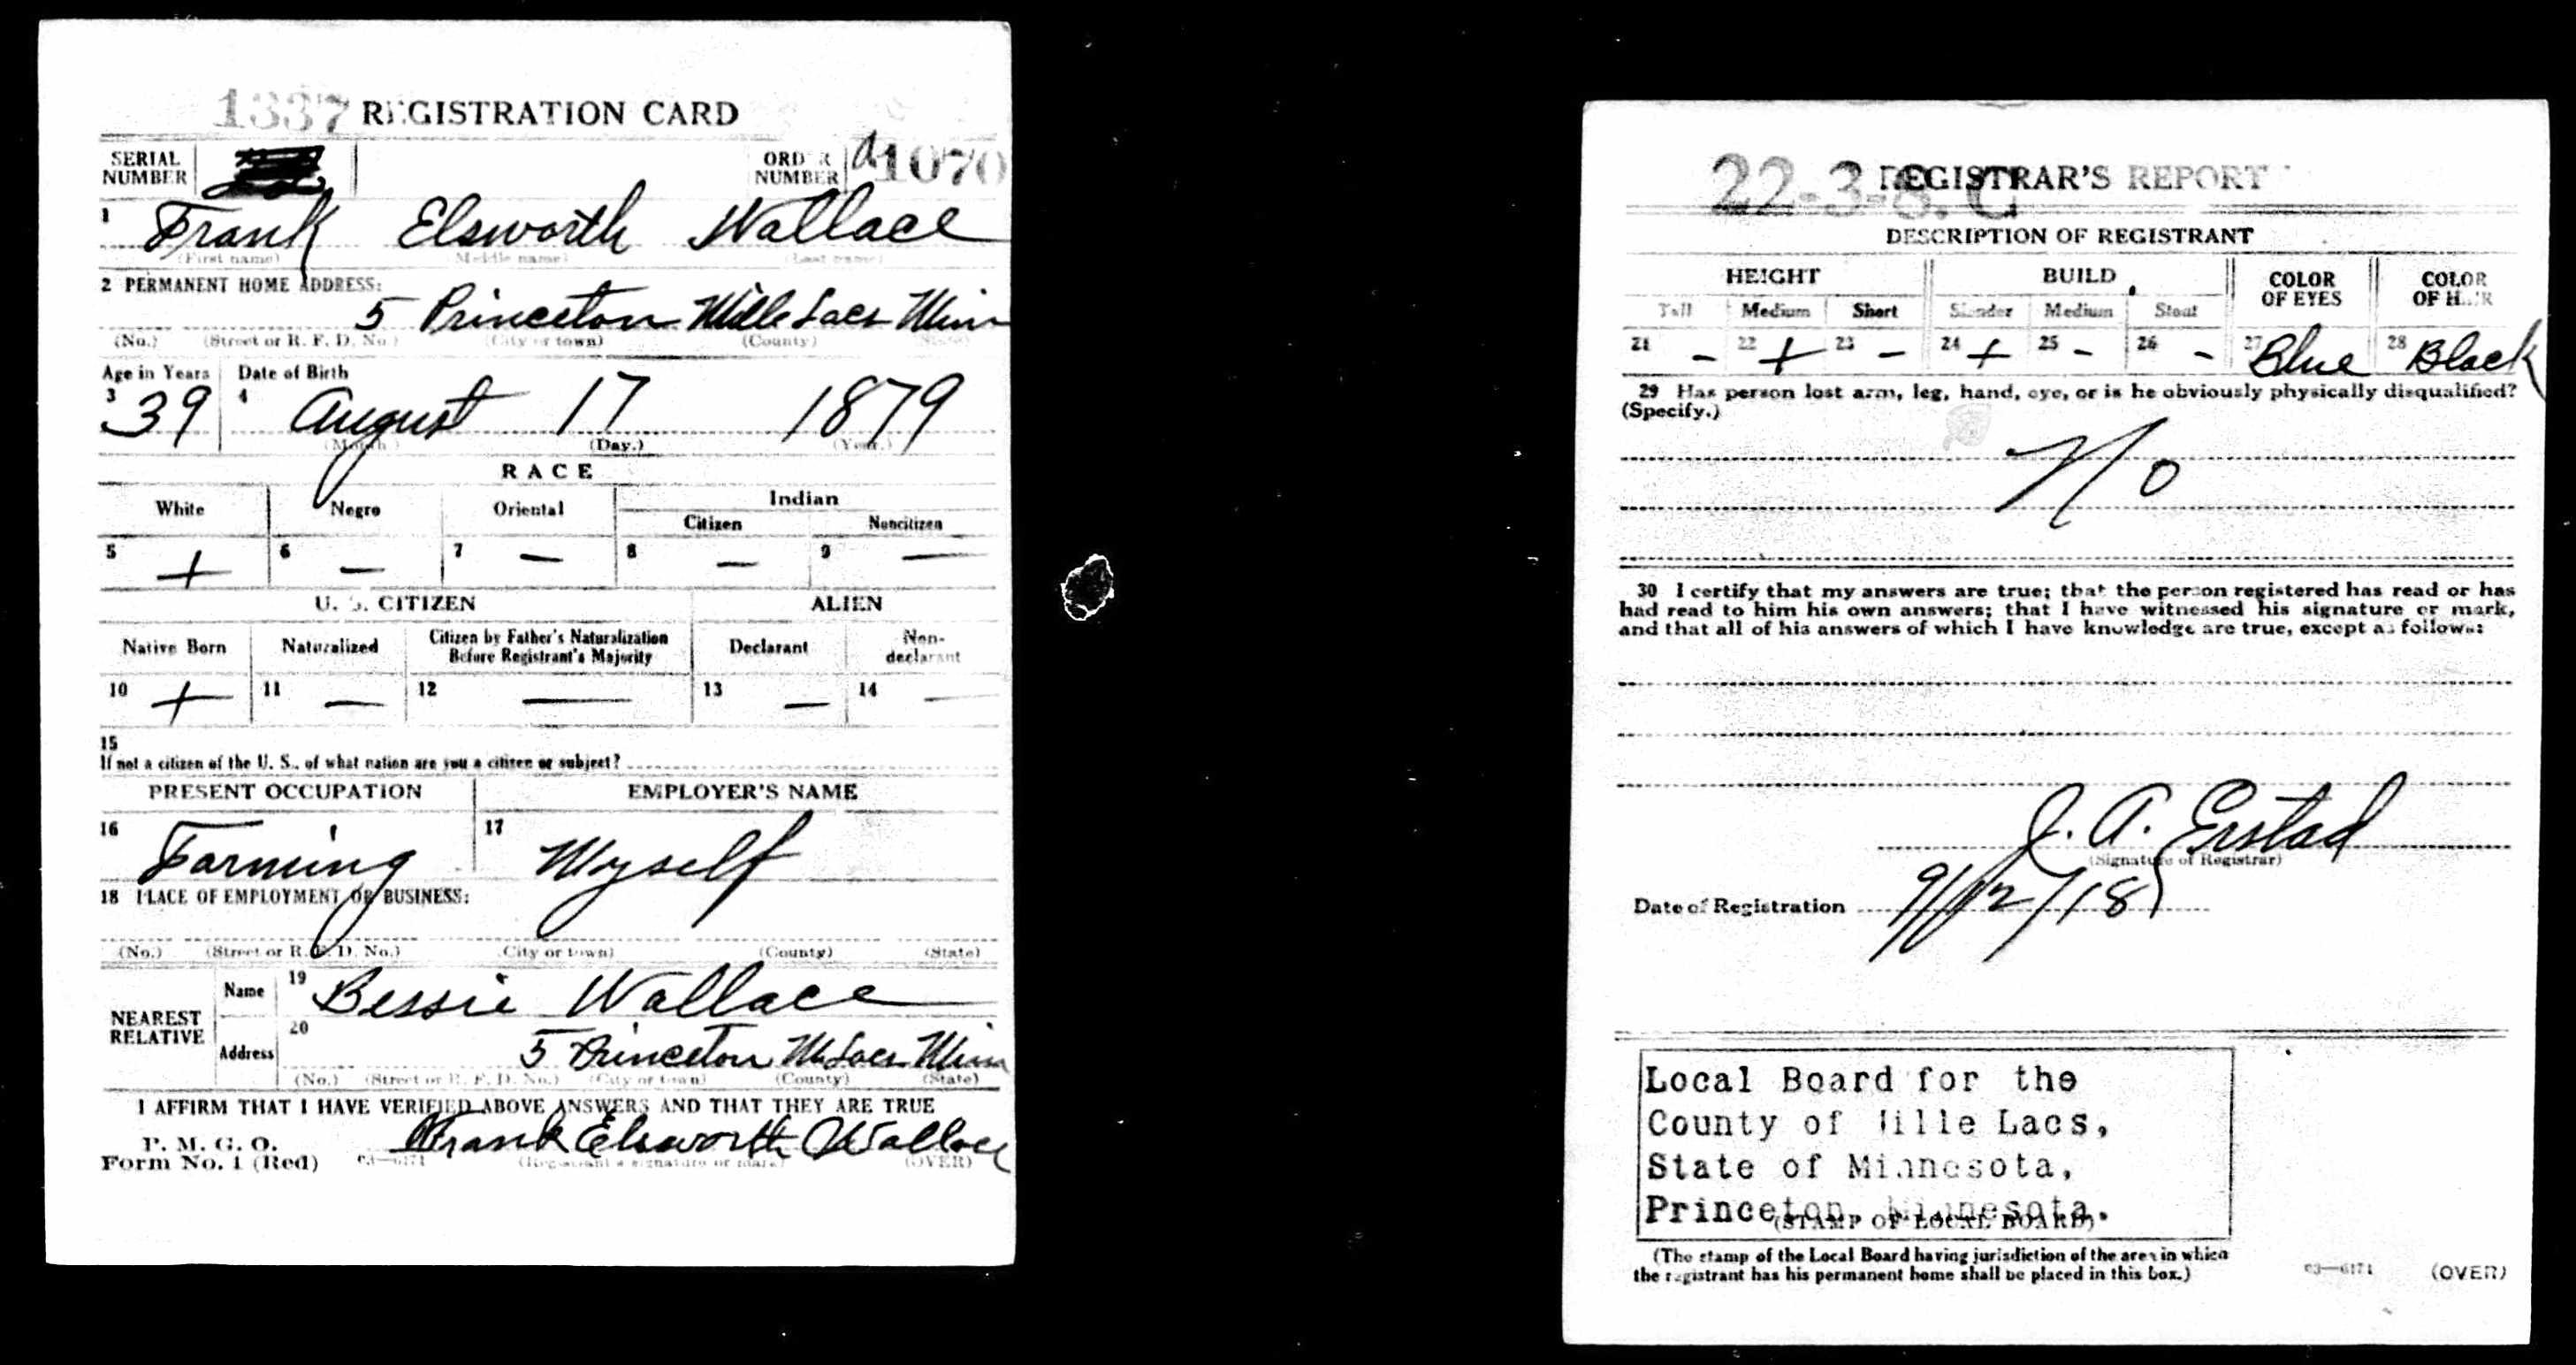 1337 REGISTRATION CARD
SERIAL NUMBER
ORDER NUMBER A1070
1 Frank Elsworth Wallace
(First name) (Middle name) (Last name)
2 PERMANENT HOME ADDRESS:
5 Princeton Mille Lacs Minn
(No.) (Street or R. F. D. No.) (City or town) (County) (State)
Age in Years Date of Birth
3 39 4 August 17 1879
(Month) (Day.) (Year.)
RACE
White Negro Oriental Indian
Citizen Noncitizen
5 + 6 — 7 — 8 — 9 —
U. S. CITIZEN ALIEN
Native Born Naturalized Citizen by Father's Naturalization Before Registrant's Majority Declarant Non-declarant
10 + 11 — 12 — 13 — 14 —
15
If not a citizen of the U. S., of what nation are you a citizen or subject?
PRESENT OCCUPATION EMPLOYER'S NAME
16 Farming 17 Myself
18 PLACE OF EMPLOYMENT OR BUSINESS:
(No.) (Street or R. F. D. No.) (City or town) (County) (State)
NEAREST RELATIVE
Name 19 Bessie Wallace
Address 20 5 Princeton M Lacs Minn
(No.) (Street or R. F. D. No.) (City or town) (County) (State)
I AFFIRM THAT I HAVE VERIFIED ABOVE ANSWERS AND THAT THEY ARE TRUE
P. M. G. O.
Form No. 1 (Red) 03—6171 Frank Elsworth Wallace
(Registrant's signature or mark) (OVER)
22-3-8. C REGISTRAR'S REPORT
DESCRIPTION OF REGISTRANT
HEIGHT BUILD COLOR OF EYES COLOR OF HAIR
Tall Medium Short Slender Medium Stout
21 - 22 + 23 - 24 + 25 - 26 - 27 Blue 28 Black
29 Has person lost arm, leg, hand, eye, or is he obviously physically disqualified?
(Specify.)
No
30 I certify that my answers are true; that the person registered has read or has
had read to him his own answers; that I have witnessed his signature or mark,
and that all of his answers of which I have knowledge are true, except as follows:
J. A. Erstad
(Signature of Registrar)
Date of Registration 9/12/18
Local Board for the
County of Mille Lacs,
State of Minnesota,
Princeton, Minnesota.
(STAMP OF LOCAL BOARD)
(The stamp of the Local Board having jurisdiction of the area in which
the registrant has his permanent home shall be placed in this box.)
03—6171 (OVER)